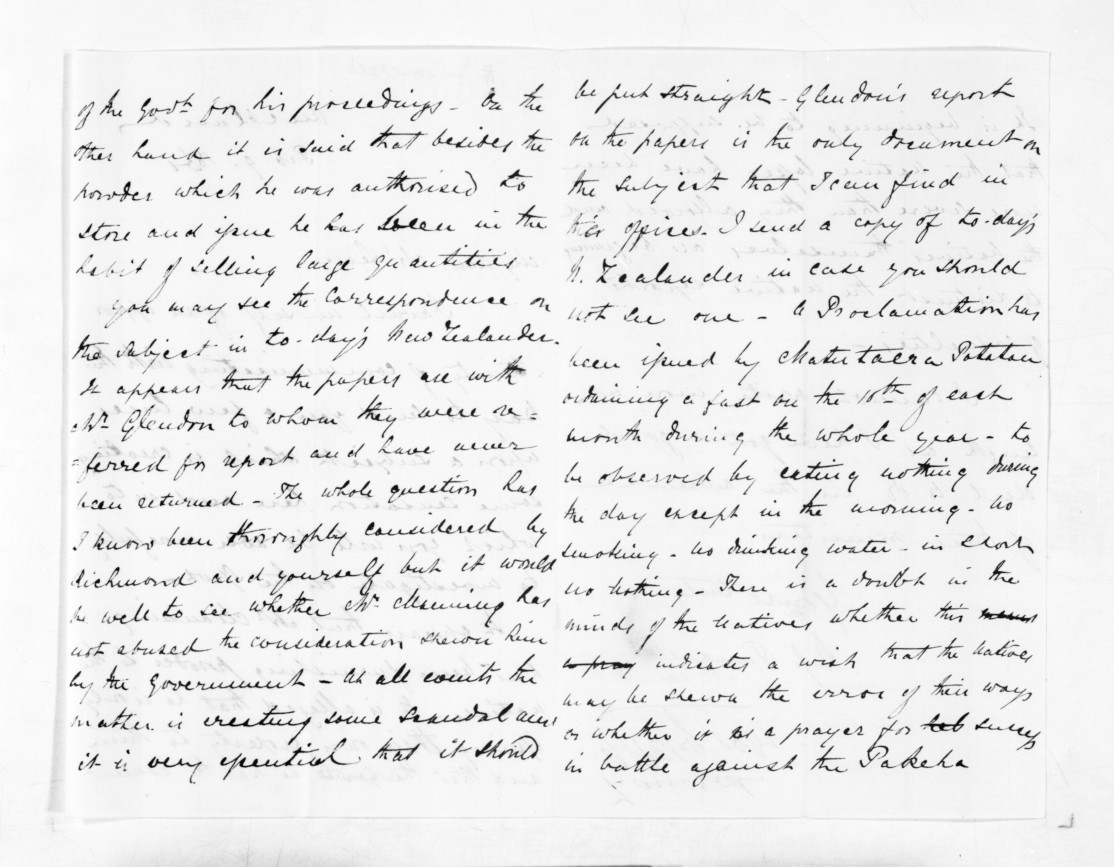 of the Govt. for his proceedings - On the
other hand it is said that besides the
powder which he was authorised to
store and issue he has been in the
habit of selling large quantities
you may see the Correspondence on
the subject in to-day's New Zealander.
It appears that the papers are with
Mr. Glendon to whom they were re=
=ferred for report and have never
been returned - The whole question has
I know been thoroughly considered by
Richmond and yourself but it would
be well to see whether Mr. Manning has
not abused the consideration shewn him
by the Government - At all events the
matter is creating some scandal and
it is very essential that it should
be put straight - Glendon's report
on the papers is the only document on
the subject that I can find in
the offices. I send a copy of to-day's
N. Zealander in case you should
not see one - A Proclamation has
been issued by Matutaera Potatau
ordaining a fast on the 10th of each
month during the whole year - to
be observed by eating nothing during
the day except in the morning - no
smoking - no drinking water - in short
no nothing - There is a doubt in the
minds of the Natives whether this
indicates a wish that the Natives
may be shewn the error of their ways
or whether it is a prayer for success
in battle against the Pakeha